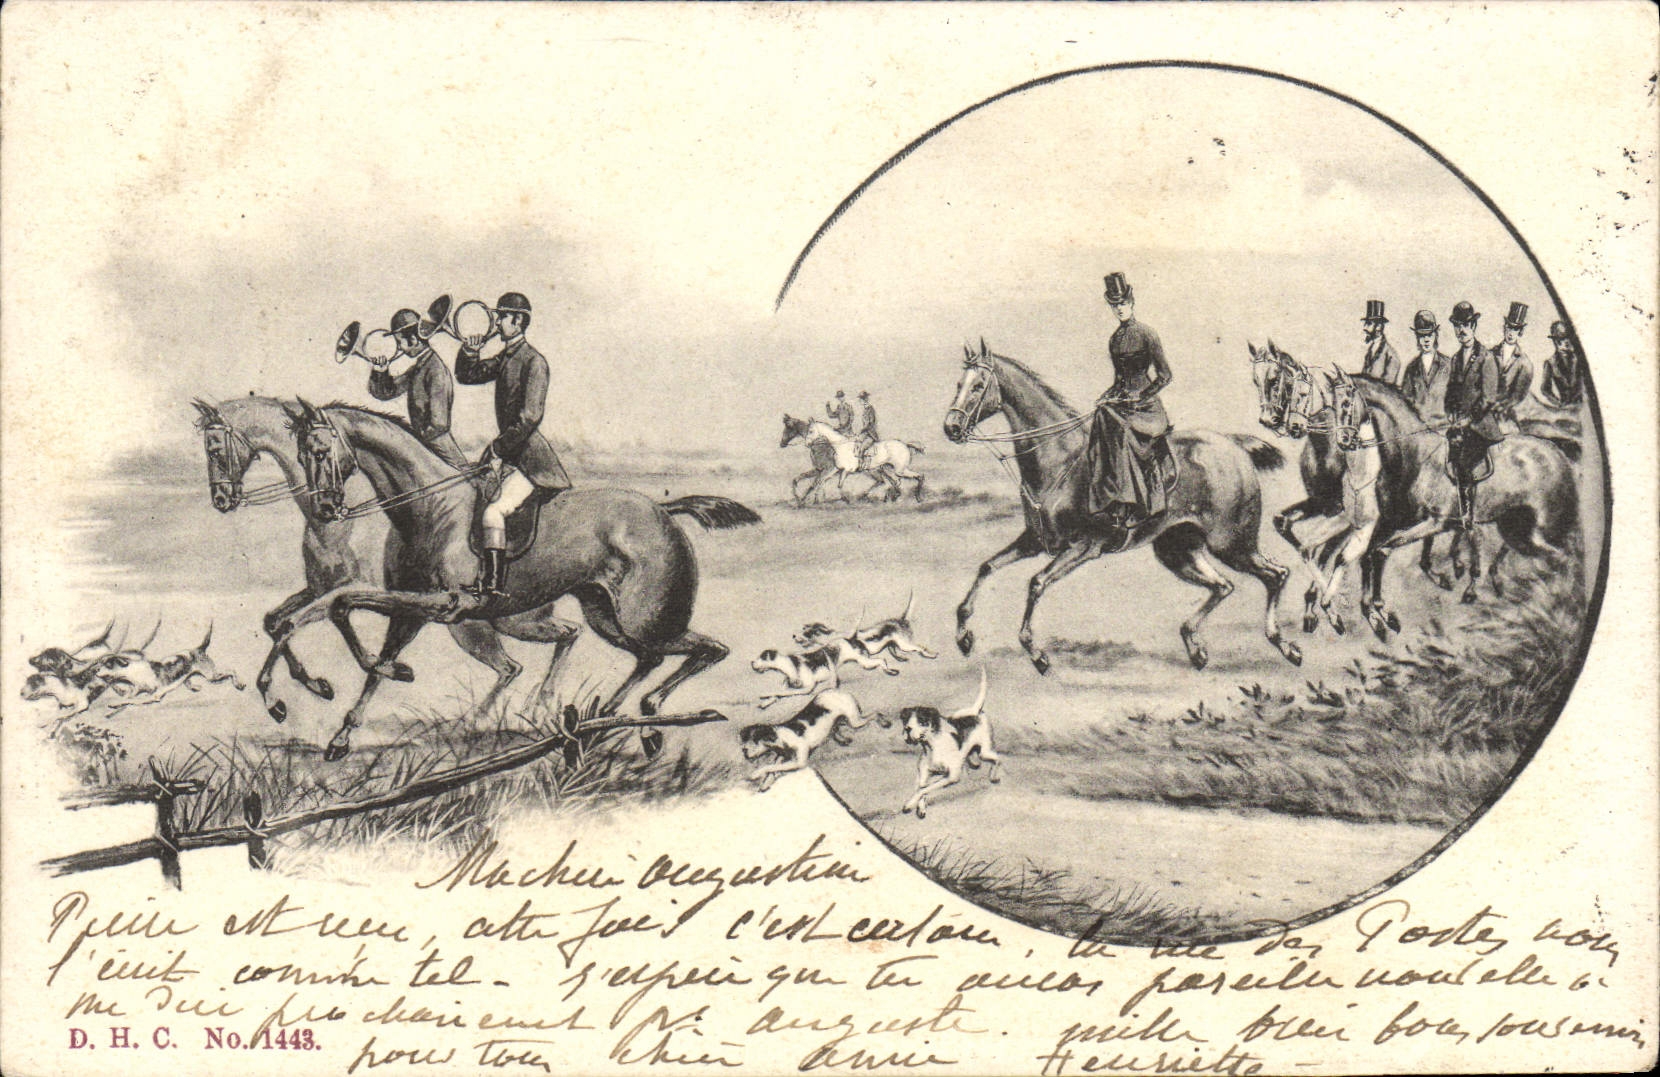 Ma chère Augustine
Pierre est reçu, cette fois c'est certain, la rue des Postes nous
l'écrit comme tel - j'espère que tu auras pareille nouvelle à
me dire prochainement pr Auguste. mille bien bons souvenirs
D. H. C. No. 1443.
pour tous chère amie Henriette -